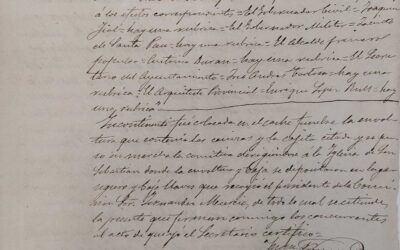 á los efectos correspondientes = El Gobernador Civil = Joaquin
José = hay una rubrica = El Gobernador Militar =
de Santa Pau = hay una rubrica = El Alcalde
popular = Antonio Duran = hay una rubrica = El Secre
tario del Ayuntamiento = José Andres = hay una
rubrica = El Arquitecto Provincial = Enrique Lopez Rull = hay
una rubrica =
Incontinenti fué colocada en el coche funebre la envol
tura que contenia las cenizas y la cajita citada y se pu
so en marcha la comitiva dirigiendose á la Iglesia de San
Sebastian donde la envoltura y caja se depositaron en lugar
seguro y bajo llaves que recogió el presidente de la Comision
Fernando de todo lo cual se estiende
la presente que firman conmigo los concurrentes
al acto de que yo el Secretario certifico =